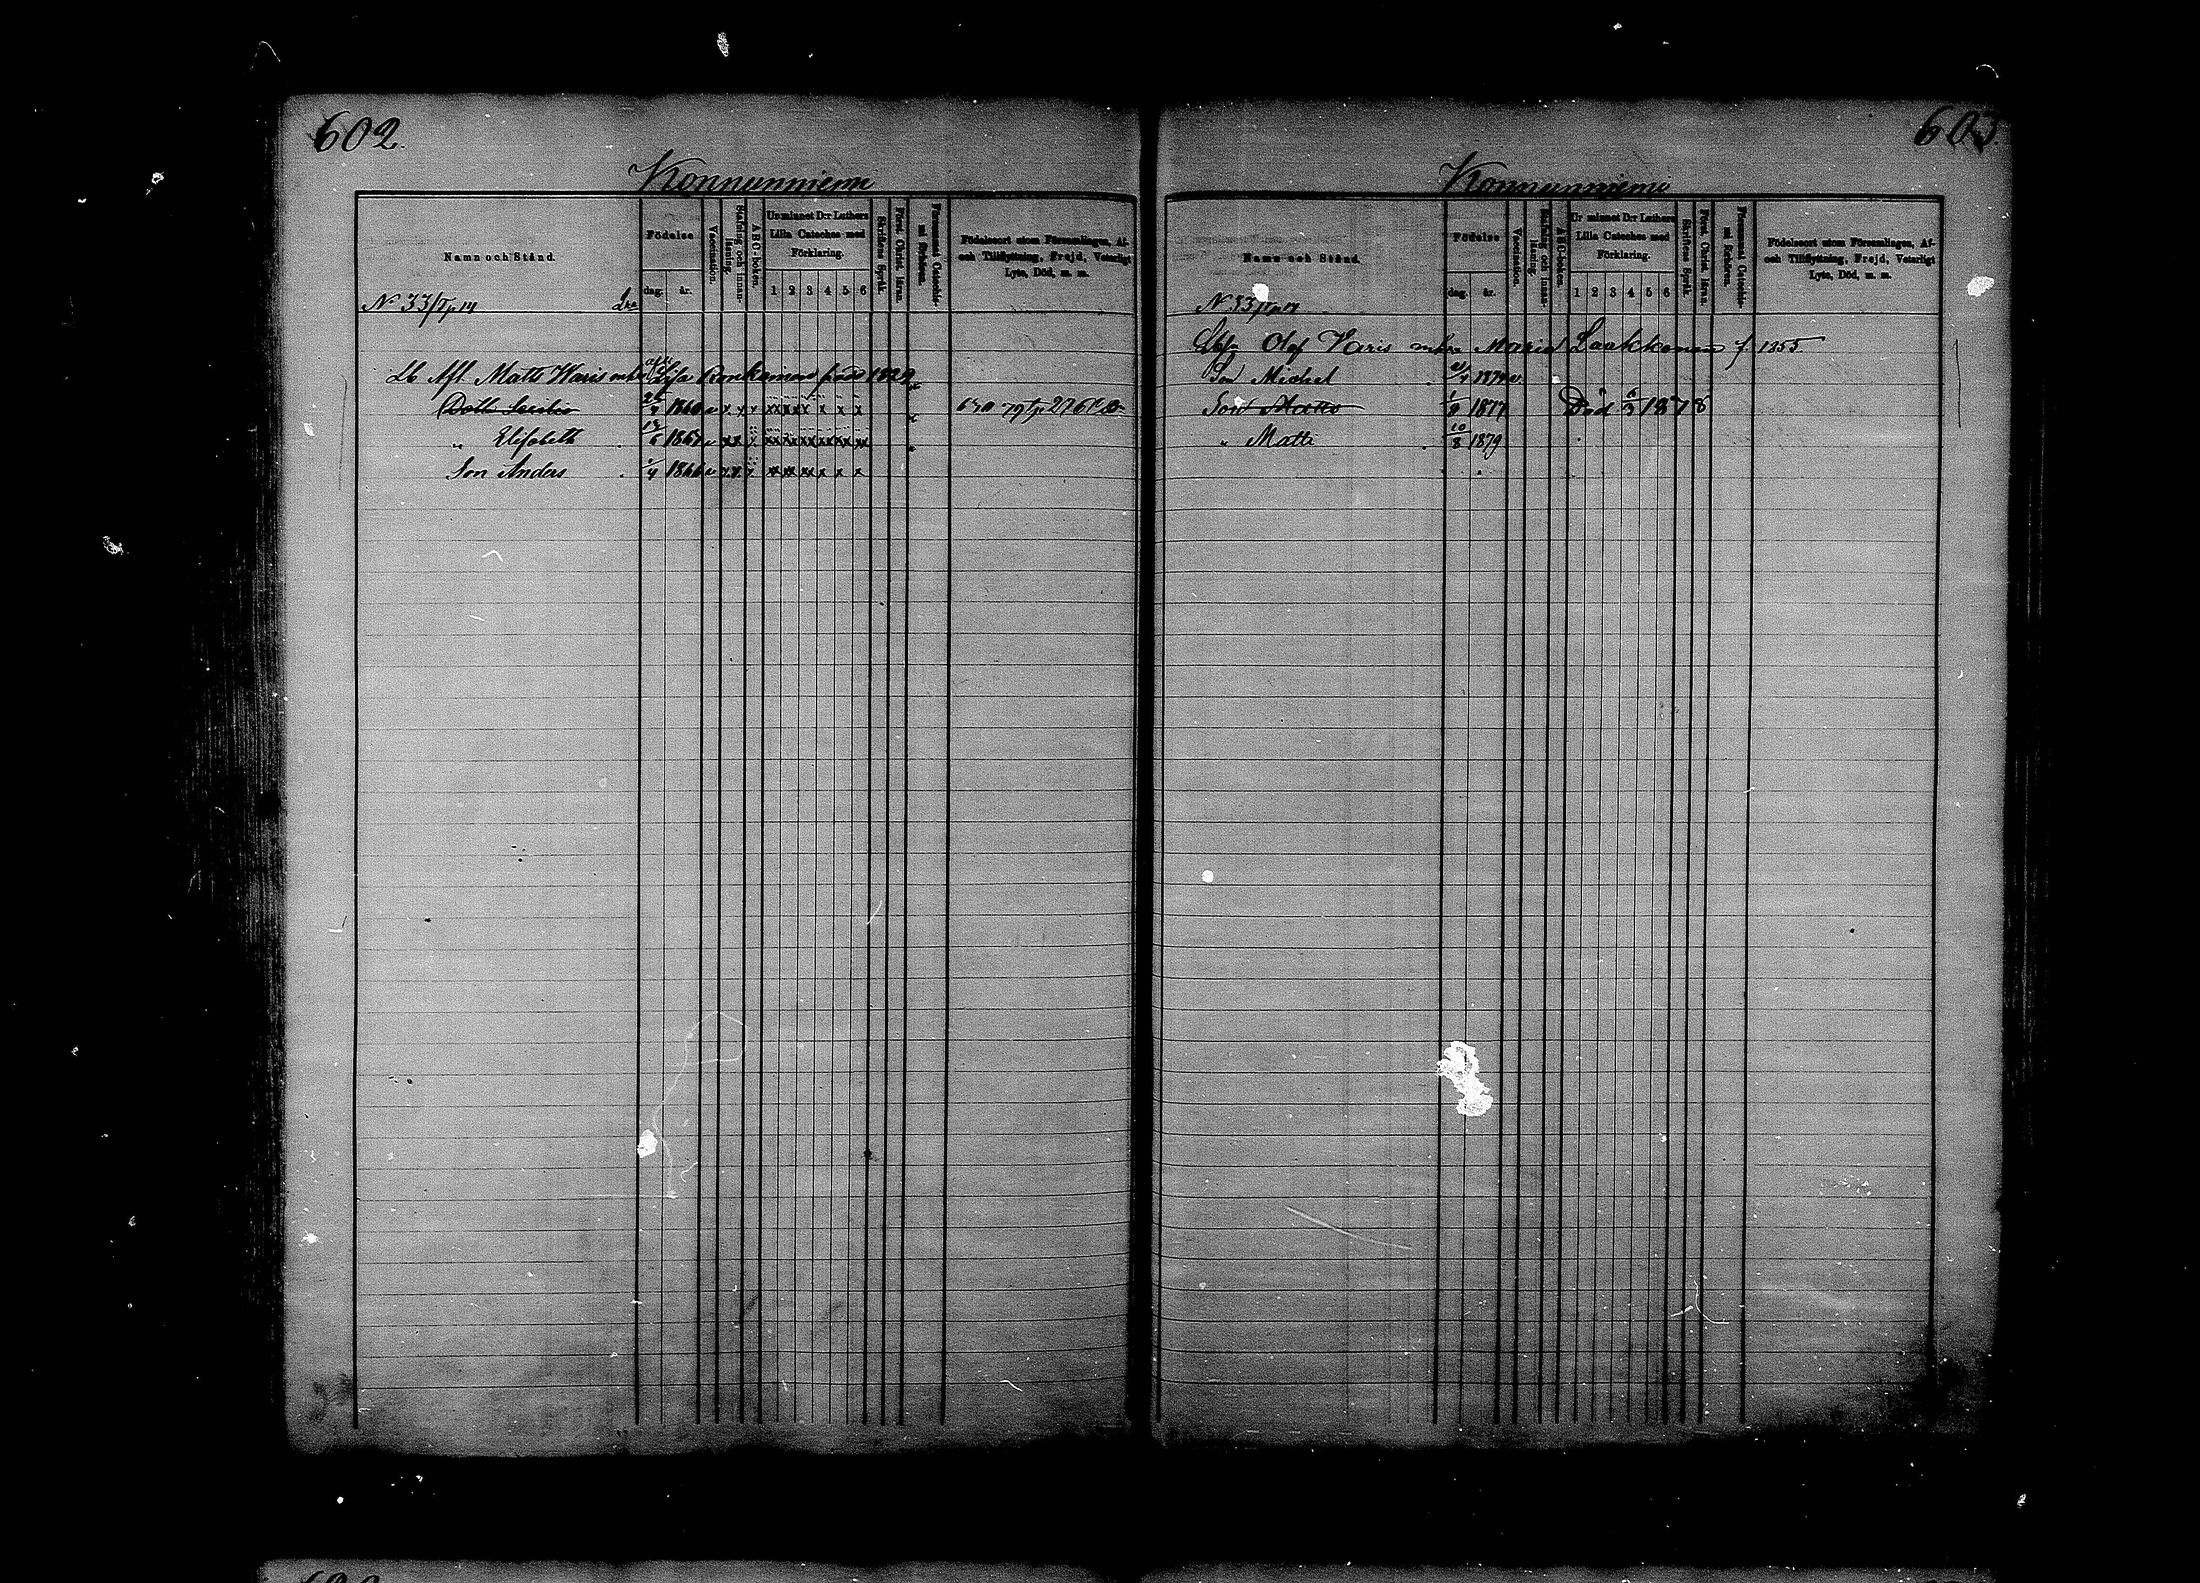 602.
Konnunniemi
Namn och Stånd.
Födelse
dag. år.
Vaccination.
Stafning och Innanläsning.
A B C-boken.
Ur minnet D:r Luthers Lilla Cateches med Förklaring.
1 2 3 4 5 6
Skriftens Språk.
Först. Christ. läran.
Födelseort utom Församlingen, Af- och Tillflyttning, Frejd, Veterligt Lyte, Död, m. m.
N 33/Tp 14
Lb Afl. Matts Waris enka Lisa Ronkainen född 1829
Dott. 1860 v x x x x x x x x x
" Elisabeth 1861 v x x
Son Anders 1/4 1866 v x x x x x x x x x
603.
Konnunniemi
Namn och Stånd.
Födelse
dag. år.
Vaccination.
Stafning och Innanläsning.
A B C-boken.
Ur minnet D:r Luthers Lilla Cateches med Förklaring.
1 2 3 4 5 6
Skriftens Språk.
Först. Christ. läran.
Födelseort utom Församlingen, Af- och Tillflyttning, Frejd, Veterligt Lyte, Död, m. m.
N 33/Tp 14
Olof Varis Maria Laakkonen f 1855.
Son Michel
Son Matts 1877 Död 6/3 1878
" Matti 10/8 1879